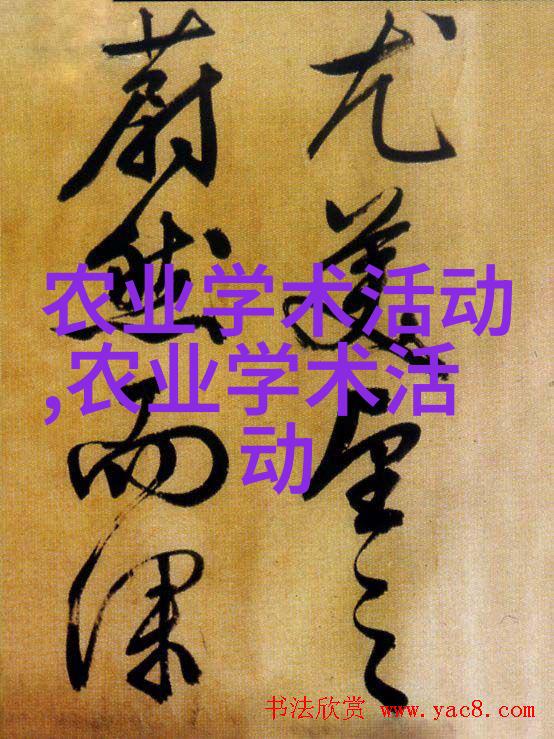 尤美望之
蔚然而深
农业学术活动
,农业学术活
动
书法欣赏 www.yac8.com